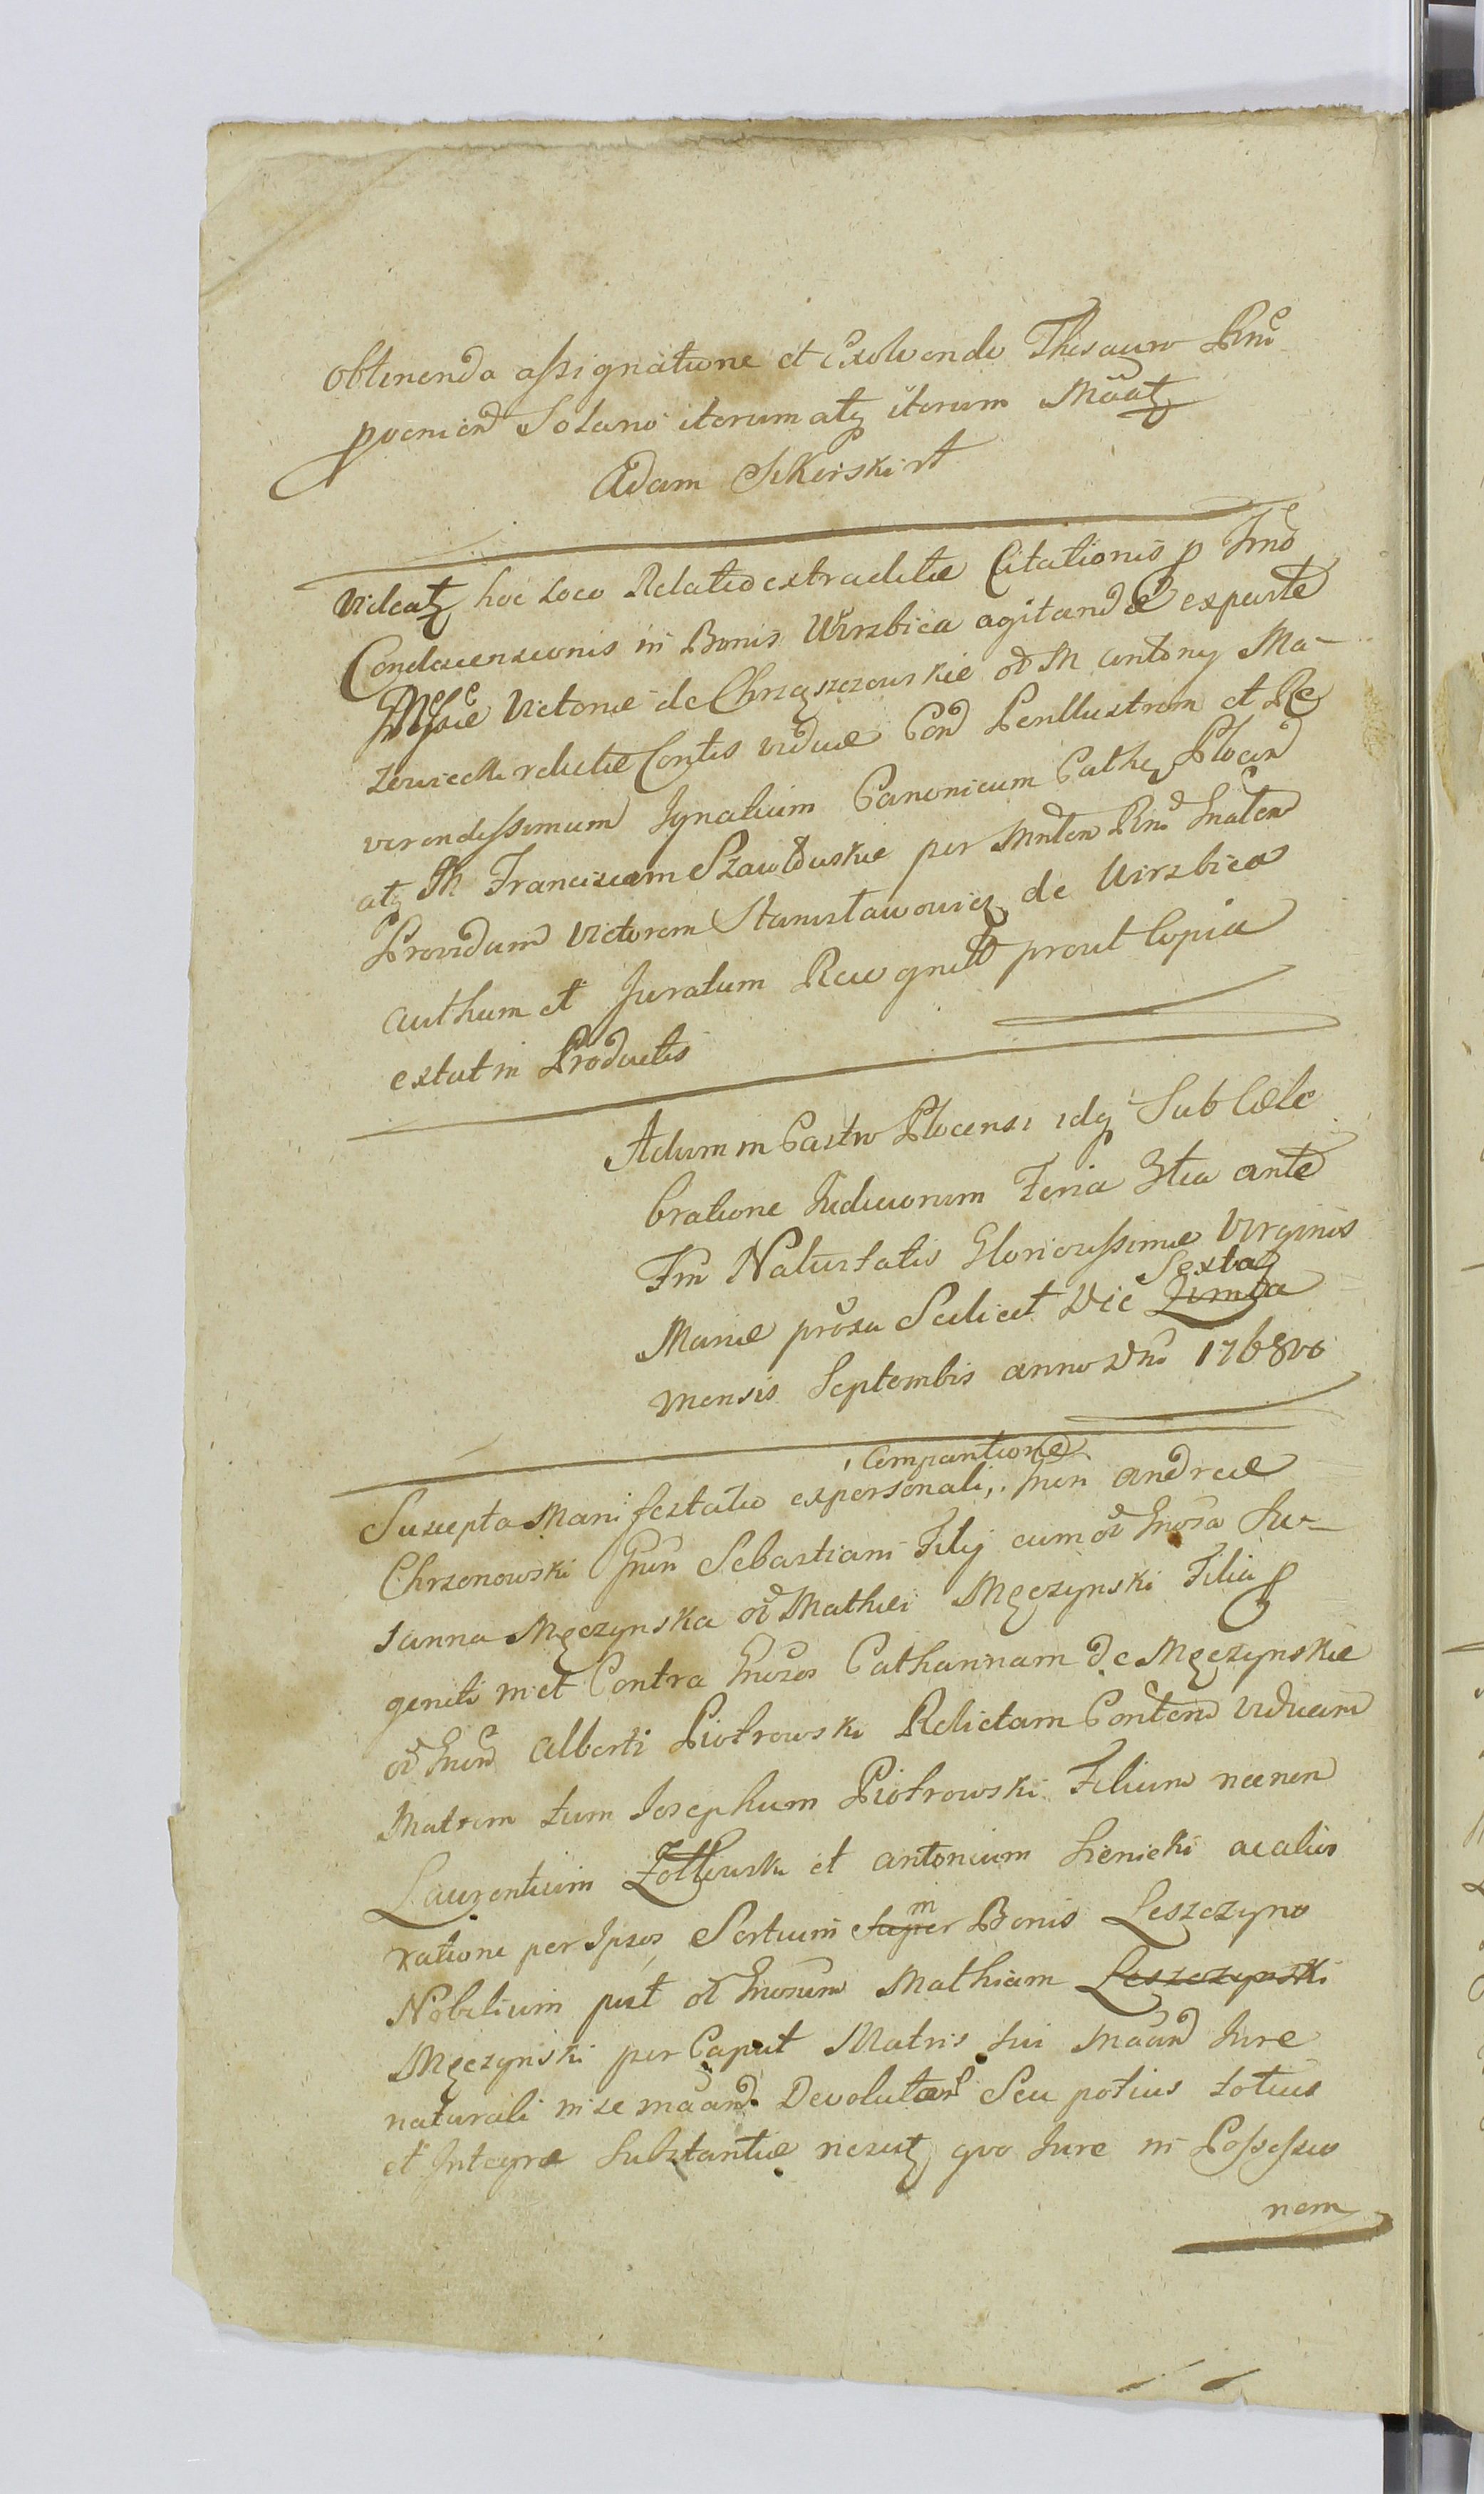 obtinenda assignatione et Exolvendo Thesauro Rni
pvenien Solario iterum atq iterum Maatq
Adam Sikorski rt
Videatq hoc Loco Relatio extraditæ Citationis p Tmo
Condescensionis in Bonis Wirzbica agitandæ exparte
Mfcæ Victoriæ de Chrząszczewskie ol M Antony Ma-
zowiecki relictæ Contis viduæ Con Perillustrem et Re
verendissimum Ignatium Canonicum Cathq Plocen
atq M Franciscam Szawłowskie per Mnlem Rni Gnalem
Providum Victorem Stanisławowicz de Wirzbica
authum et Juratum Recognitt prout Copia
extat in Productis
Actum in Castro Plocensi idq Sub Cele
bratione Judiciorum Feria 3tia ante
Fm Nativitatis Gloriosissimæ Virginis
Sexta
Mariæ proxa Scilicet Die Quinta
mensis Septembris anno Dni 1768vo
Comparitione
Suscepta Manifestatio expersonali, Gnen Andreæ
Chrzonowski Gnen Sebastiani Filij cum ol Gnosa Su-
sanna Męczynska ol Mathei Męczynski Filia p
geniti in et Contra Gnosos Catharinam de Męczynskie
ol Gnen Alberti Piotrowski Relictam Conten viduam
Matrem tum Josephum Piotrowski Filium necnon
Laurentium Zołtowski et antonium Lienicki acalios
ratione per Ipsos Sortium super in Bonis Leszczyno
Nobilium pust ol Gnosum Mathiam Leszczynski
Męczynski per Caput Matris sui maan Jure
naturali in se maan Devolutar Seu potius totius
et Integræ Substantiæ nescitq quo Jure in Possessio
nem